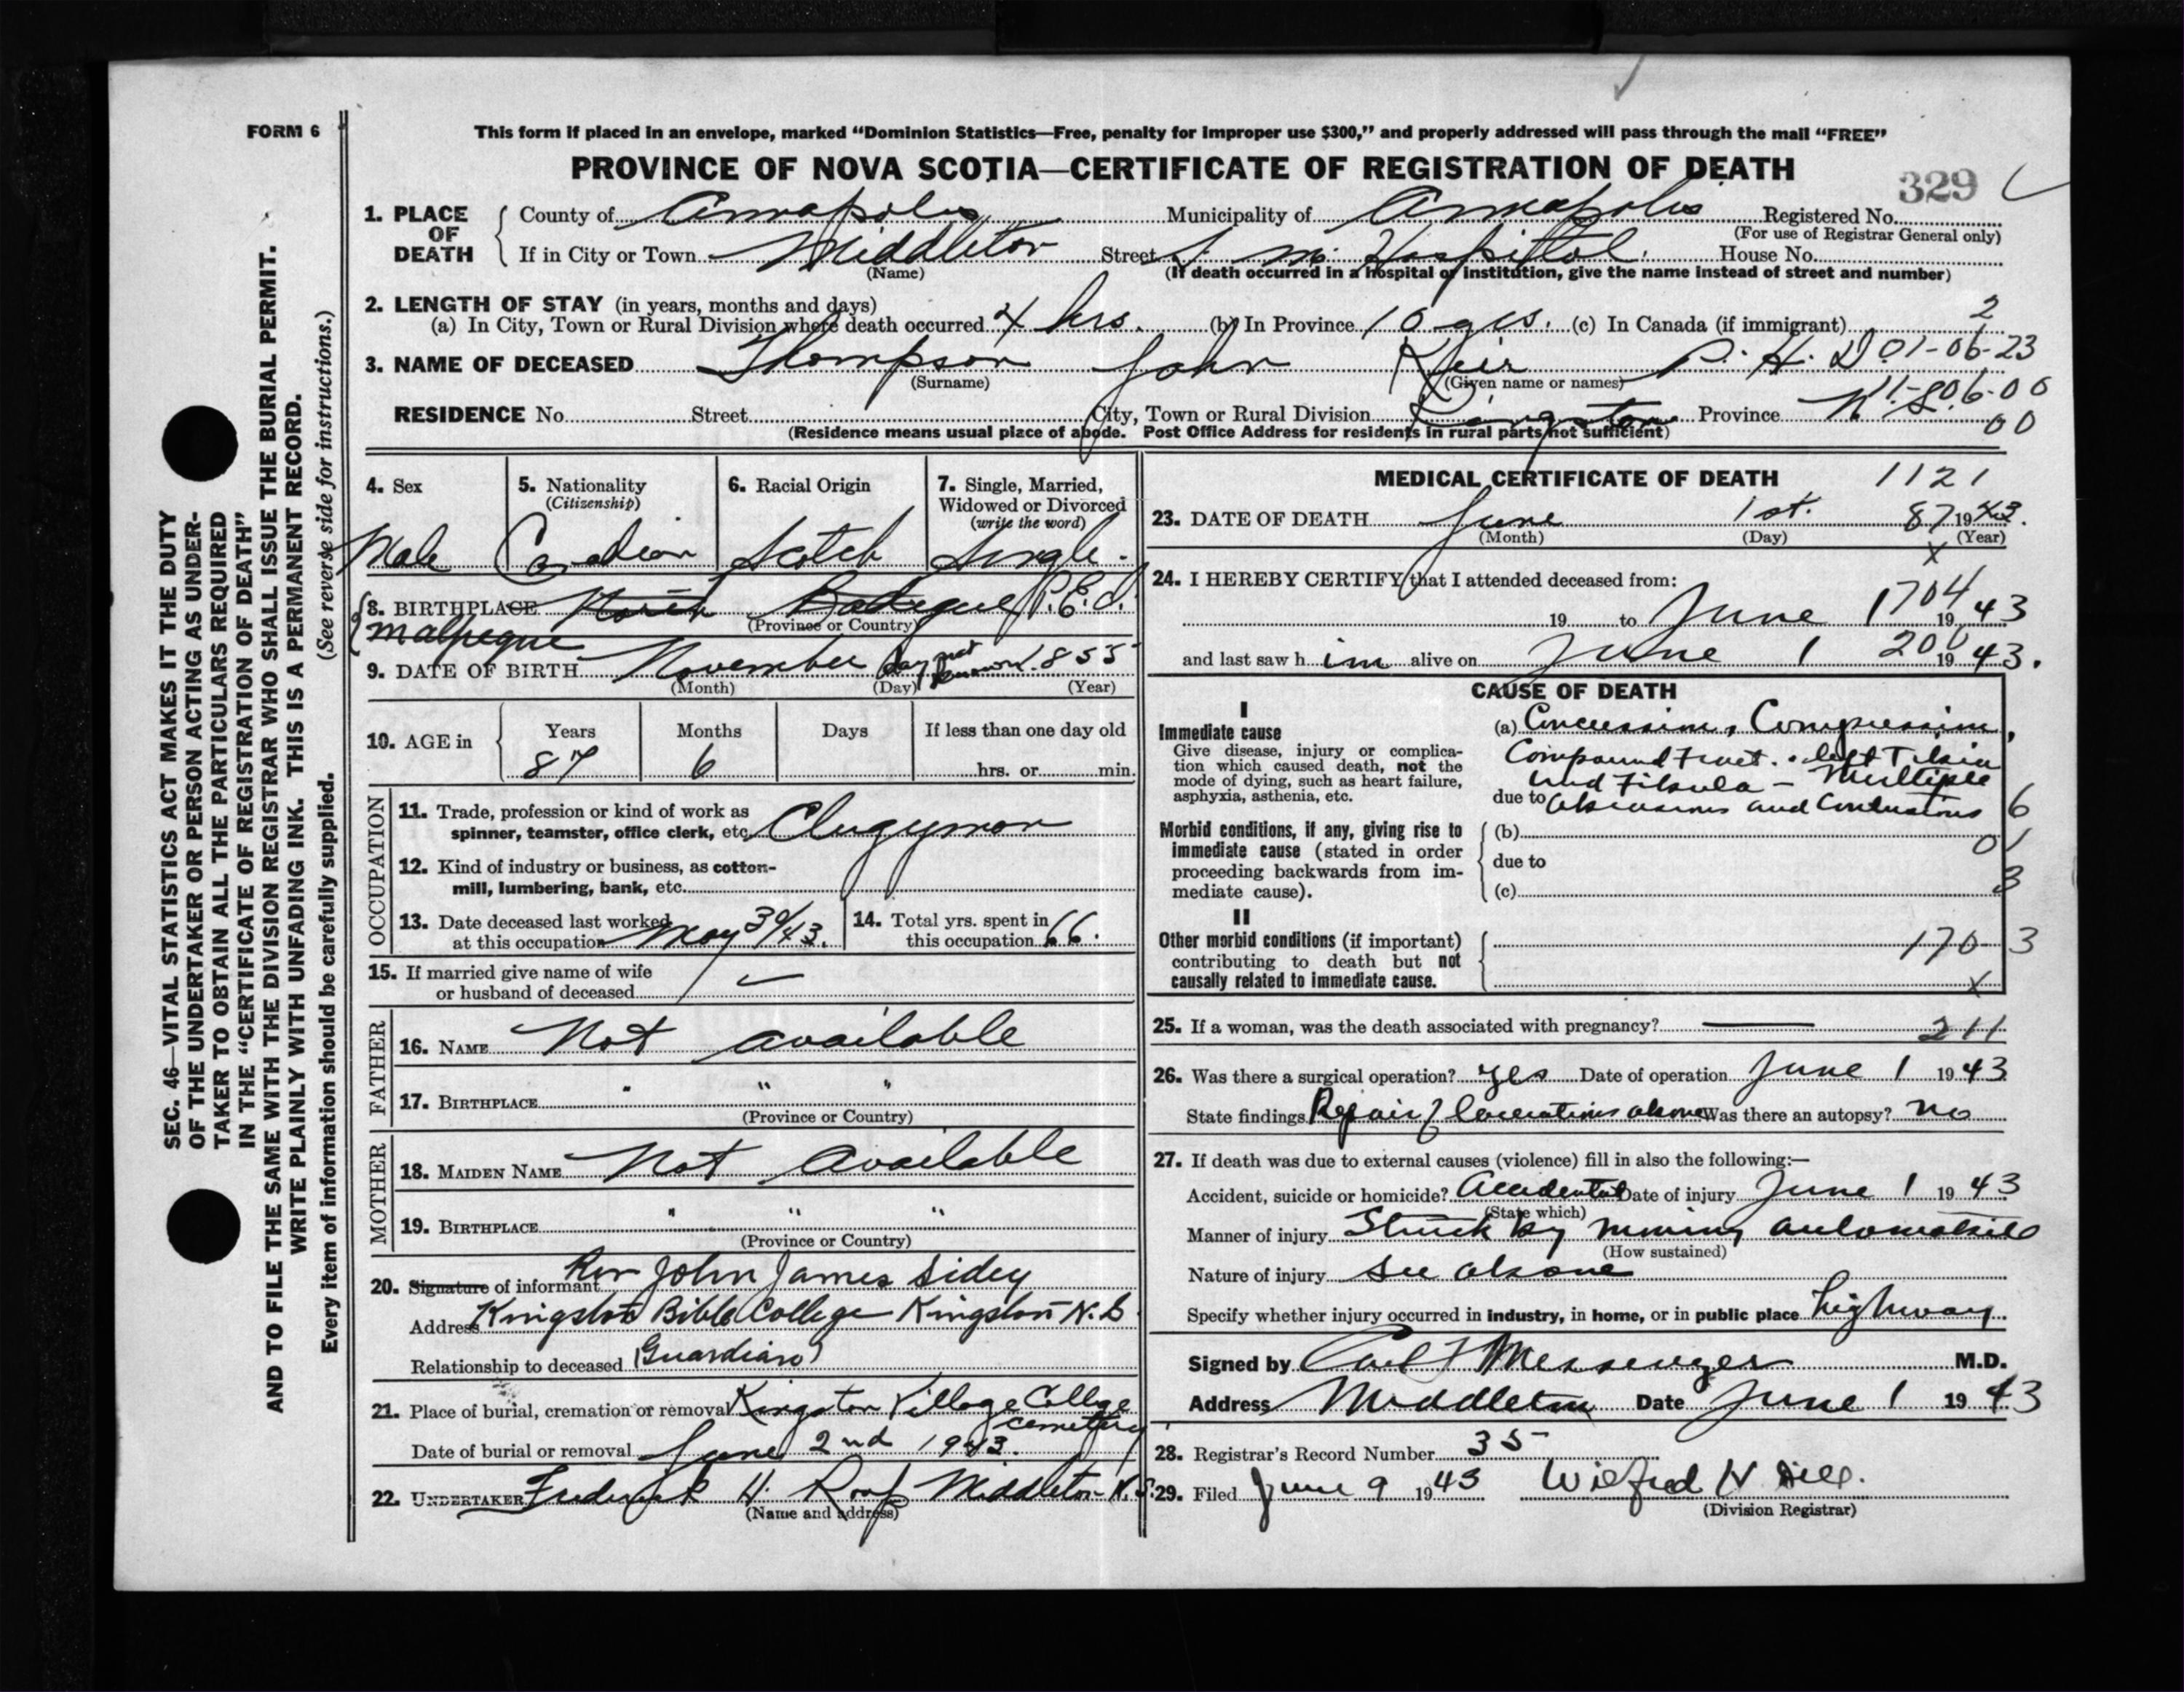 FORM 6
This form if placed in an envelope, marked “Dominion Statistics—Free, penalty for improper use $300,” and properly addressed will pass through the mail “FREE”
PROVINCE OF NOVA SCOTIA—CERTIFICATE OF REGISTRATION OF DEATH
329
1. PLACE OF DEATH
County of Annapolis Municipality of Annapolis Registered No.
(For use of Registrar General only)
If in City or Town Middleton Street S. M. Hospital. House No.
(Name) (If death occurred in a hospital or institution, give the name instead of street and number)
2. LENGTH OF STAY (in years, months and days)
(a) In City, Town or Rural Division where death occurred 4 hrs. (b) In Province 10 yrs. (c) In Canada (if immigrant) 2
3. NAME OF DECEASED Thompson John Keir P. H. D. 01-06-23
(Surname) (Given name or names) 11-806-00
RESIDENCE No. Street City, Town or Rural Division Kingston Province N. S. 00
(Residence means usual place of abode. Post Office Address for residents in rural parts not sufficient)
4. Sex
Male
5. Nationality
(Citizenship)
Canadian
6. Racial Origin
Scotch
7. Single, Married,
Widowed or Divorced
(write the word)
Single.
8. BIRTHPLACE North Bedeque P.E.I.
(Province or Country)
Malpeque
9. DATE OF BIRTH November day not known 1855
(Month) (Day) (Year)
10. AGE in
Years Months Days If less than one day old
87 6 hrs. or min.
OCCUPATION
11. Trade, profession or kind of work as
spinner, teamster, office clerk, etc. Clergyman
12. Kind of industry or business, as cotton-
mill, lumbering, bank, etc.
13. Date deceased last worked
at this occupation May 30/43.
14. Total yrs. spent in
this occupation 66.
15. If married give name of wife
or husband of deceased
FATHER
16. NAME Not available
17. BIRTHPLACE " " "
(Province or Country)
MOTHER
18. MAIDEN NAME Not available
19. BIRTHPLACE " " "
(Province or Country)
20. Signature of informant Rev John James Sidey
Address Kingston Bible College Kingston N.S
Relationship to deceased (Guardian)
21. Place of burial, cremation or removal Kingston Village College
cemetery
Date of burial or removal June 2nd 1943.
22. UNDERTAKER Frederick H. Roop Middleton N.S.
(Name and address)
MEDICAL CERTIFICATE OF DEATH 1121
23. DATE OF DEATH June 1st. 87 1943.
(Month) (Day) (Year)
X
24. I HEREBY CERTIFY that I attended deceased from:
1704
19 to June 1 1943
200
and last saw him alive on June 1 1943.
CAUSE OF DEATH
I
Immediate cause
Give disease, injury or complica-
tion which caused death, not the
mode of dying, such as heart failure,
asphyxia, asthenia, etc.
(a) Concussion, Compression,
Compound Fract. left Tibia
and Fibula – Multiple
due to abrasions and Contusions 6
Morbid conditions, if any, giving rise to
immediate cause (stated in order
proceeding backwards from im-
mediate cause).
(b) 01
due to
(c) 3
II
Other morbid conditions (if important)
contributing to death but not
causally related to immediate cause.
170 3
X
25. If a woman, was the death associated with pregnancy? — 211
26. Was there a surgical operation? yes Date of operation June 1 1943
State findings Repair of lacerations above Was there an autopsy? no
27. If death was due to external causes (violence) fill in also the following:—
Accident, suicide or homicide? Accidental Date of injury June 1 1943
(State which)
Manner of injury Struck by moving automobile
(How sustained)
Nature of injury See above
Specify whether injury occurred in industry, in home, or in public place highway.
Signed by Messenger M.D.
Address Middleton Date June 1 1943
28. Registrar’s Record Number 35
29. Filed June 9 1943 Wilfred H
(Division Registrar)
SEC. 46—VITAL STATISTICS ACT MAKES IT THE DUTY
OF THE UNDERTAKER OR PERSON ACTING AS UNDER-
TAKER TO OBTAIN ALL THE PARTICULARS REQUIRED
IN THE “CERTIFICATE OF REGISTRATION OF DEATH”
AND TO FILE THE SAME WITH THE DIVISION REGISTRAR WHO SHALL ISSUE THE BURIAL PERMIT.
WRITE PLAINLY WITH UNFADING INK. THIS IS A PERMANENT RECORD.
Every item of information should be carefully supplied. (See reverse side for instructions.)